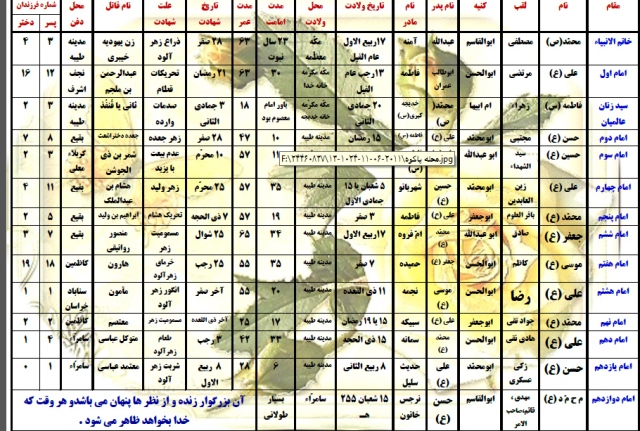 مقام نام لقب کنیه نام پدر نام مادر تاریخ ولادت محل ولادت مدت امامت مدت عمر تاریخ شهادت علت شهادت نام قاتل محل دفن شماره فرزندان پسر دختر
خاتم الانبیاء محمد(ص) مصطفی ابوالقاسم عبدالله آمنه ۱۷ربیع الاول عام الفیل مکه معظمه ۲۳ سال نبوت ۶۳ ۲۸ صفر ذراع زهر آلود زن یهودیه خیبری مدینه طیبه ۳ ۴
امام اول علی (ع) مرتضی ابوالحسن ابوطالب عمران فاطمه ۱۳رجب عام الفیل مکه مکرمه خانه خدا ۳۰ ۶۳ ۲۱ رمضان تحریکات قطام عبدالرحمن بن ملجم نجف اشرف ۱۲ ۱۶
سید زنان عالمیان فاطمه (س) زهراء ام ابیها محمد (ص) خدیجه کبری(س) ۲۰ جمادی الثانی مکه مکرمه خانه خدیجه یاور امام معصوم بود ۱۸ ۳ جمادی الثانی صدمات وارده ثانی یا قنفذ مدینه طیبه ۳ ۲
امام دوم حسن (ع) مجتبی ابومحمد علی (ع) فاطمه (س) ۱۵ رمضان مدینه طیبه ۱۰ ۴۷ ۲۸ صفر زهر جعده جعده دختراشعث بقیع ۸ ۷
امام سوم حسین (ع) سید الشهداء ابو عبدالله ۱۱ ۵۷ ۱۰ محرم عدم بیعت با یزید شمر بن ذی الجوشن کربلاء معلی ۳ ۲
امام چهارم علی (ع) زین العابدین ابوالحسن حسین (ع) شهربانو ۵ شعبان یا ۱۵ جمادی الاول مدینه طیبه ۳۵ ۵۷ ۲۵ محرم زهر ولید هشام بن عبدالملک بقیع ۱۱ ۴
امام پنجم محمد (ع) باقر العلوم ابوجعفر علی (ع) فاطمه ۳ صفر مدینه طیبه ۱۹ ۵۷ ۷ ذی الحجه تحریک هشام ابراهیم بن ولید بقیع ۵ ۲
امام ششم جعفر (ع) صادق ابوعبدالله محمد (ع) ام فروه ۱۷ربیع الاول مدینه طیبه ۳۴ ۶۵ ۲۵ شوال مسمومیت زهر منصور دوانیقی بقیع ۷ ۳
امام هفتم موسی (ع) کاظم ابوالحسن جعفر(ع) حمیده ۷ صفر مدینه طیبه ۳۵ ۵۵ ۲۵ رجب خرمای زهرآلود هارون کاظمین ۱۸ ۱۹
امام هشتم علی (ع) رضا ابوالحسن موسی (ع) نجمه ۱۱ ذی القعده مدینه طیبه ۲۰ ۵۵ آخر صفر انگور زهر آلود مأمون سناباد خراسان ۱ ۱
امام نهم محمد (ع) جواد تقی ابوجعفر علی (ع) سبیکه ۱۵ یا ۱۹ رمضان مدینه طیبه ۱۷ ۲۵ آخر ذی القعده مسمومیت زهر معتصم کاظمین ۲ ۲
امام دهم علی (ع) هادی نقی ابوالحسن محمد (ع) سمانه ۱۵ ذی الحجه مدینه طیبه ۳۳ ۴۲ ۳ رجب طعام زهرآلود متوکل عباسی سامراء ۴ ۱
امام یازدهم حسن (ع) زکی عسکری ابومحمد علی (ع) حدیث سلیل ۸ ربیع الثانی مدینه طیبه ۶ ۲۸ ۸ ربیع الاول شربت زهر آلود معتمد عباسی سامراء ۱ ۰
امام دوازدهم م ح م د (ع) مهدی، قائم،صاحب الامر ابوالقاسم حسن (ع) نرجس خاتون ۱۵ شعبان ۲۵۵ هـ سامراء بسیار طولانی آن بزرگوار زنده و از نظر ها پنهان می باشدو هر وقت که
خدا بخواهد ظاهر می شود .